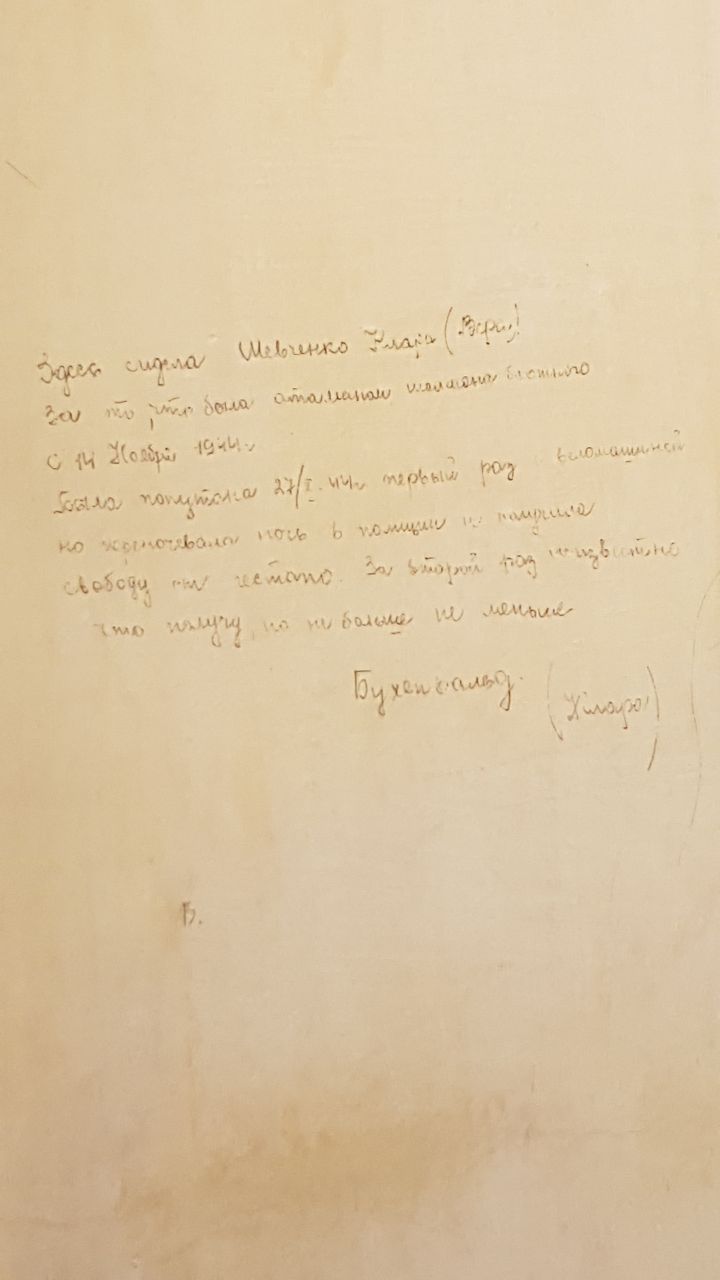 Здесь сидела Шевченко Клара (Вера)
За то, что была атаманом
с 14 Ноября 1944г.
Была попутана 27/I. 44г. первый раз
но переночевала ночь в полиции и получила
свободу гестапо. За второй раз неизвестно
что получу, но не больше не меньше
Бухенвальд.
(Клара)
В.